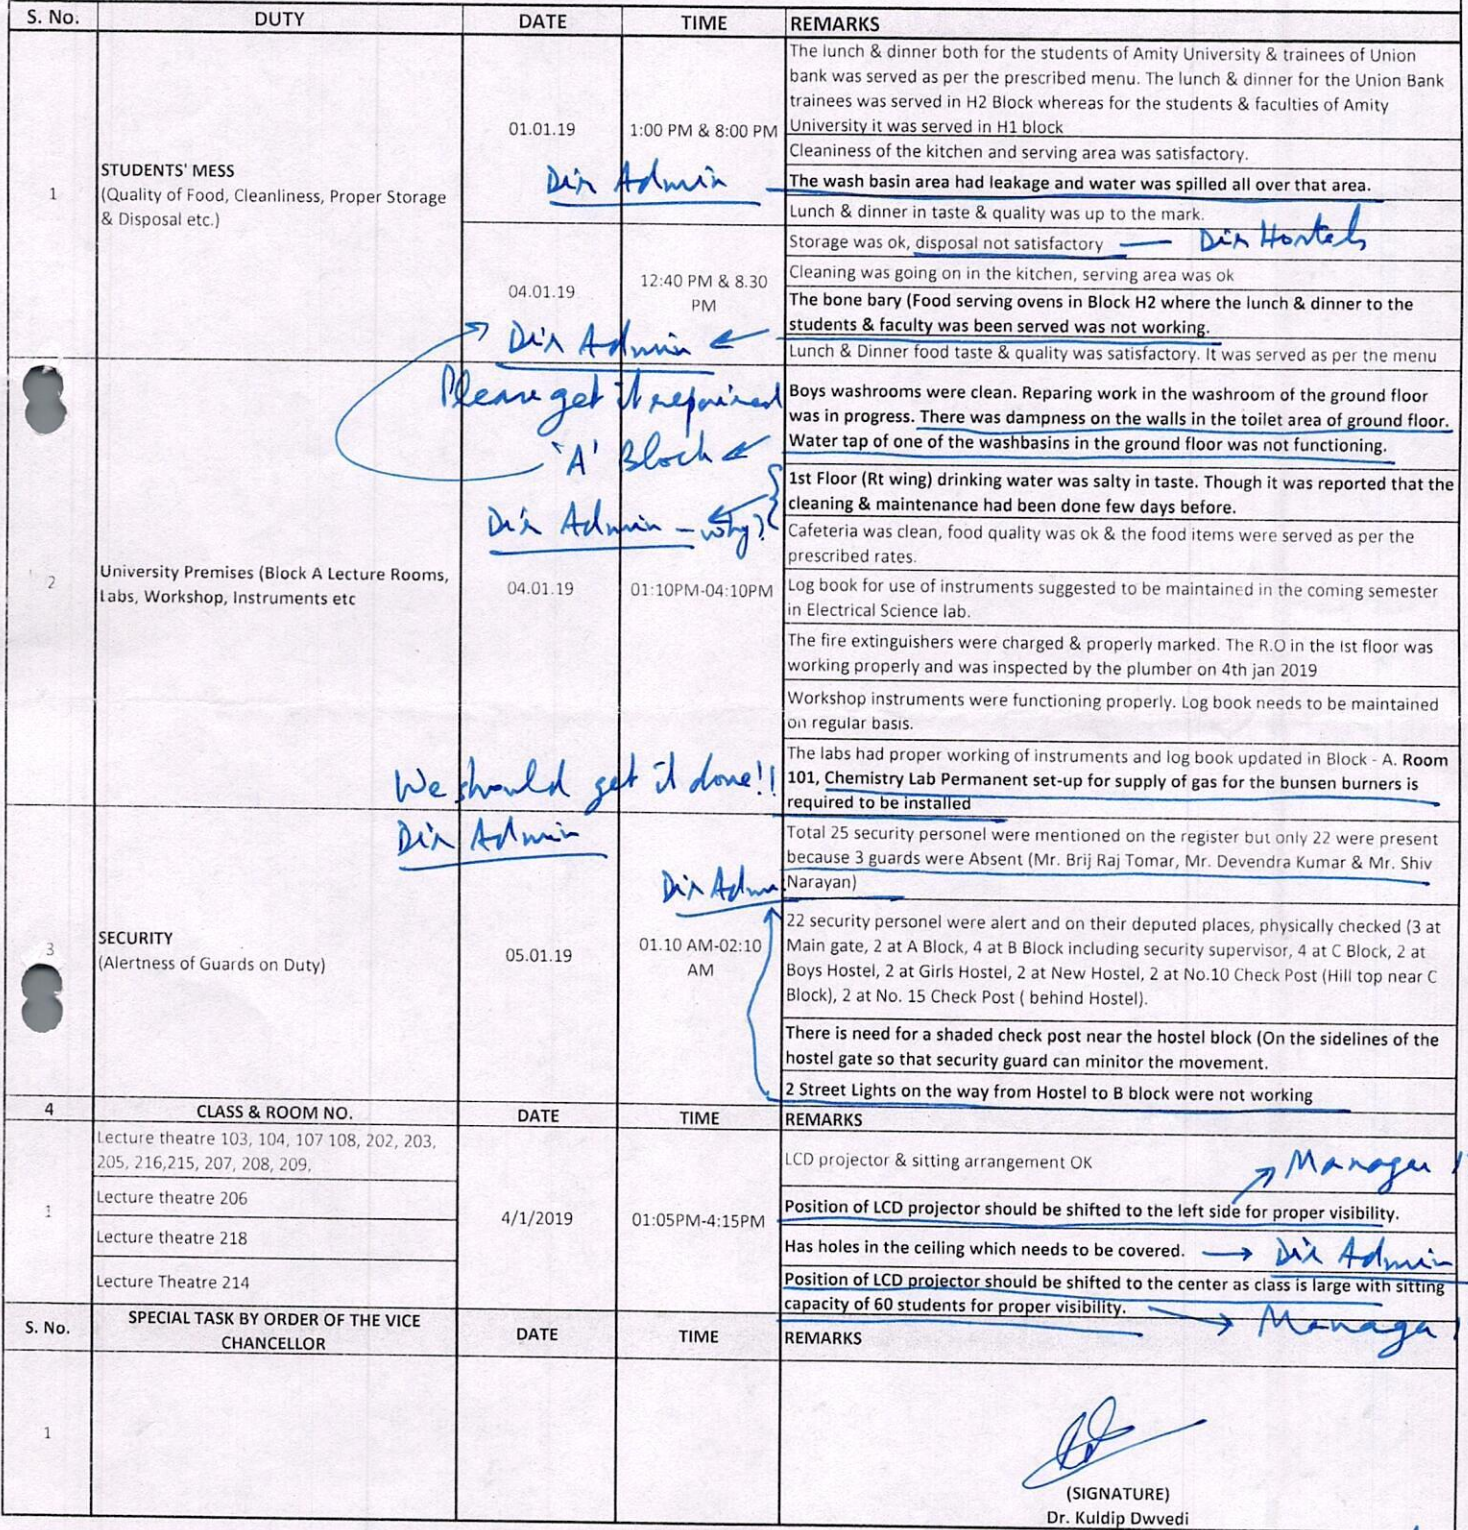 S. No. DUTY DATE TIME REMARKS
The lunch & dinner both for the students of Amity University & trainees of Union
bank was served as per the prescribed menu. The lunch & dinner for the Union Bank
trainees was served in H2 Block whereas for the students & faculties of Amity
01.01.19 1:00 PM & 8:00 PM University it was served in H1 block
Cleaniness of the kitchen and serving area was satisfactory.
Dir Admin The wash basin area had leakage and water was spilled all over that area.
1 STUDENTS' MESS
(Quality of Food, Cleanliness, Proper Storage
& Disposal etc.)
Lunch & dinner in taste & quality was up to the mark.
Storage was ok, disposal not satisfactory — Dir Hostels
04.01.19 12:40 PM & 8.30
PM
Cleaning was going on in the kitchen, serving area was ok
The bone bary (Food serving ovens in Block H2 where the lunch & dinner to the
students & faculty was been served was not working.
Dir Admin
Lunch & Dinner food taste & quality was satisfactory. It was served as per the menu
Please get it repaired
Boys washrooms were clean. Reparing work in the washroom of the ground floor
was in progress. There was dampness on the walls in the toilet area of ground floor.
Water tap of one of the washbasins in the ground floor was not functioning.
'A' Block
1st Floor (Rt wing) drinking water was salty in taste. Though it was reported that the
cleaning & maintenance had been done few days before.
Dir Admin – why?
Cafeteria was clean, food quality was ok & the food items were served as per the
prescribed rates.
2 University Premises (Block A Lecture Rooms,
Labs, Workshop, Instruments etc
04.01.19 01:10PM-04:10PM
Log book for use of instruments suggested to be maintained in the coming semester
in Electrical Science lab.
The fire extinguishers were charged & properly marked. The R.O in the Ist floor was
working properly and was inspected by the plumber on 4th jan 2019
Workshop instruments were functioning properly. Log book needs to be maintained
on regular basis.
The labs had proper working of instruments and log book updated in Block - A. Room
101, Chemistry Lab Permanent set-up for supply of gas for the bunsen burners is
required to be installed
We should get it done!!
Dir Admin
Total 25 security personel were mentioned on the register but only 22 were present
because 3 guards were Absent (Mr. Brij Raj Tomar, Mr. Devendra Kumar & Mr. Shiv
Narayan)
Dir Admn
3 SECURITY
(Alertness of Guards on Duty)
05.01.19 01.10 AM-02:10
AM
22 security personel were alert and on their deputed places, physically checked (3 at
Main gate, 2 at A Block, 4 at B Block including security supervisor, 4 at C Block, 2 at
Boys Hostel, 2 at Girls Hostel, 2 at New Hostel, 2 at No.10 Check Post (Hill top near C
Block), 2 at No. 15 Check Post ( behind Hostel).
There is need for a shaded check post near the hostel block (On the sidelines of the
hostel gate so that security guard can minitor the movement.
2 Street Lights on the way from Hostel to B block were not working
4 CLASS & ROOM NO. DATE TIME REMARKS
Lecture theatre 103, 104, 107 108, 202, 203,
205, 216,215, 207, 208, 209,
LCD projector & sitting arrangement OK
Manager
1 4/1/2019 01:05PM-4:15PM
Lecture theatre 206
Position of LCD projector should be shifted to the left side for proper visibility.
Lecture theatre 218
Has holes in the ceiling which needs to be covered. Dir Admin
Lecture Theatre 214
Position of LCD projector should be shifted to the center as class is large with sitting
capacity of 60 students for proper visibility. Manager
S. No. SPECIAL TASK BY ORDER OF THE VICE
CHANCELLOR
DATE TIME REMARKS
1
(SIGNATURE)
Dr. Kuldip Dwvedi